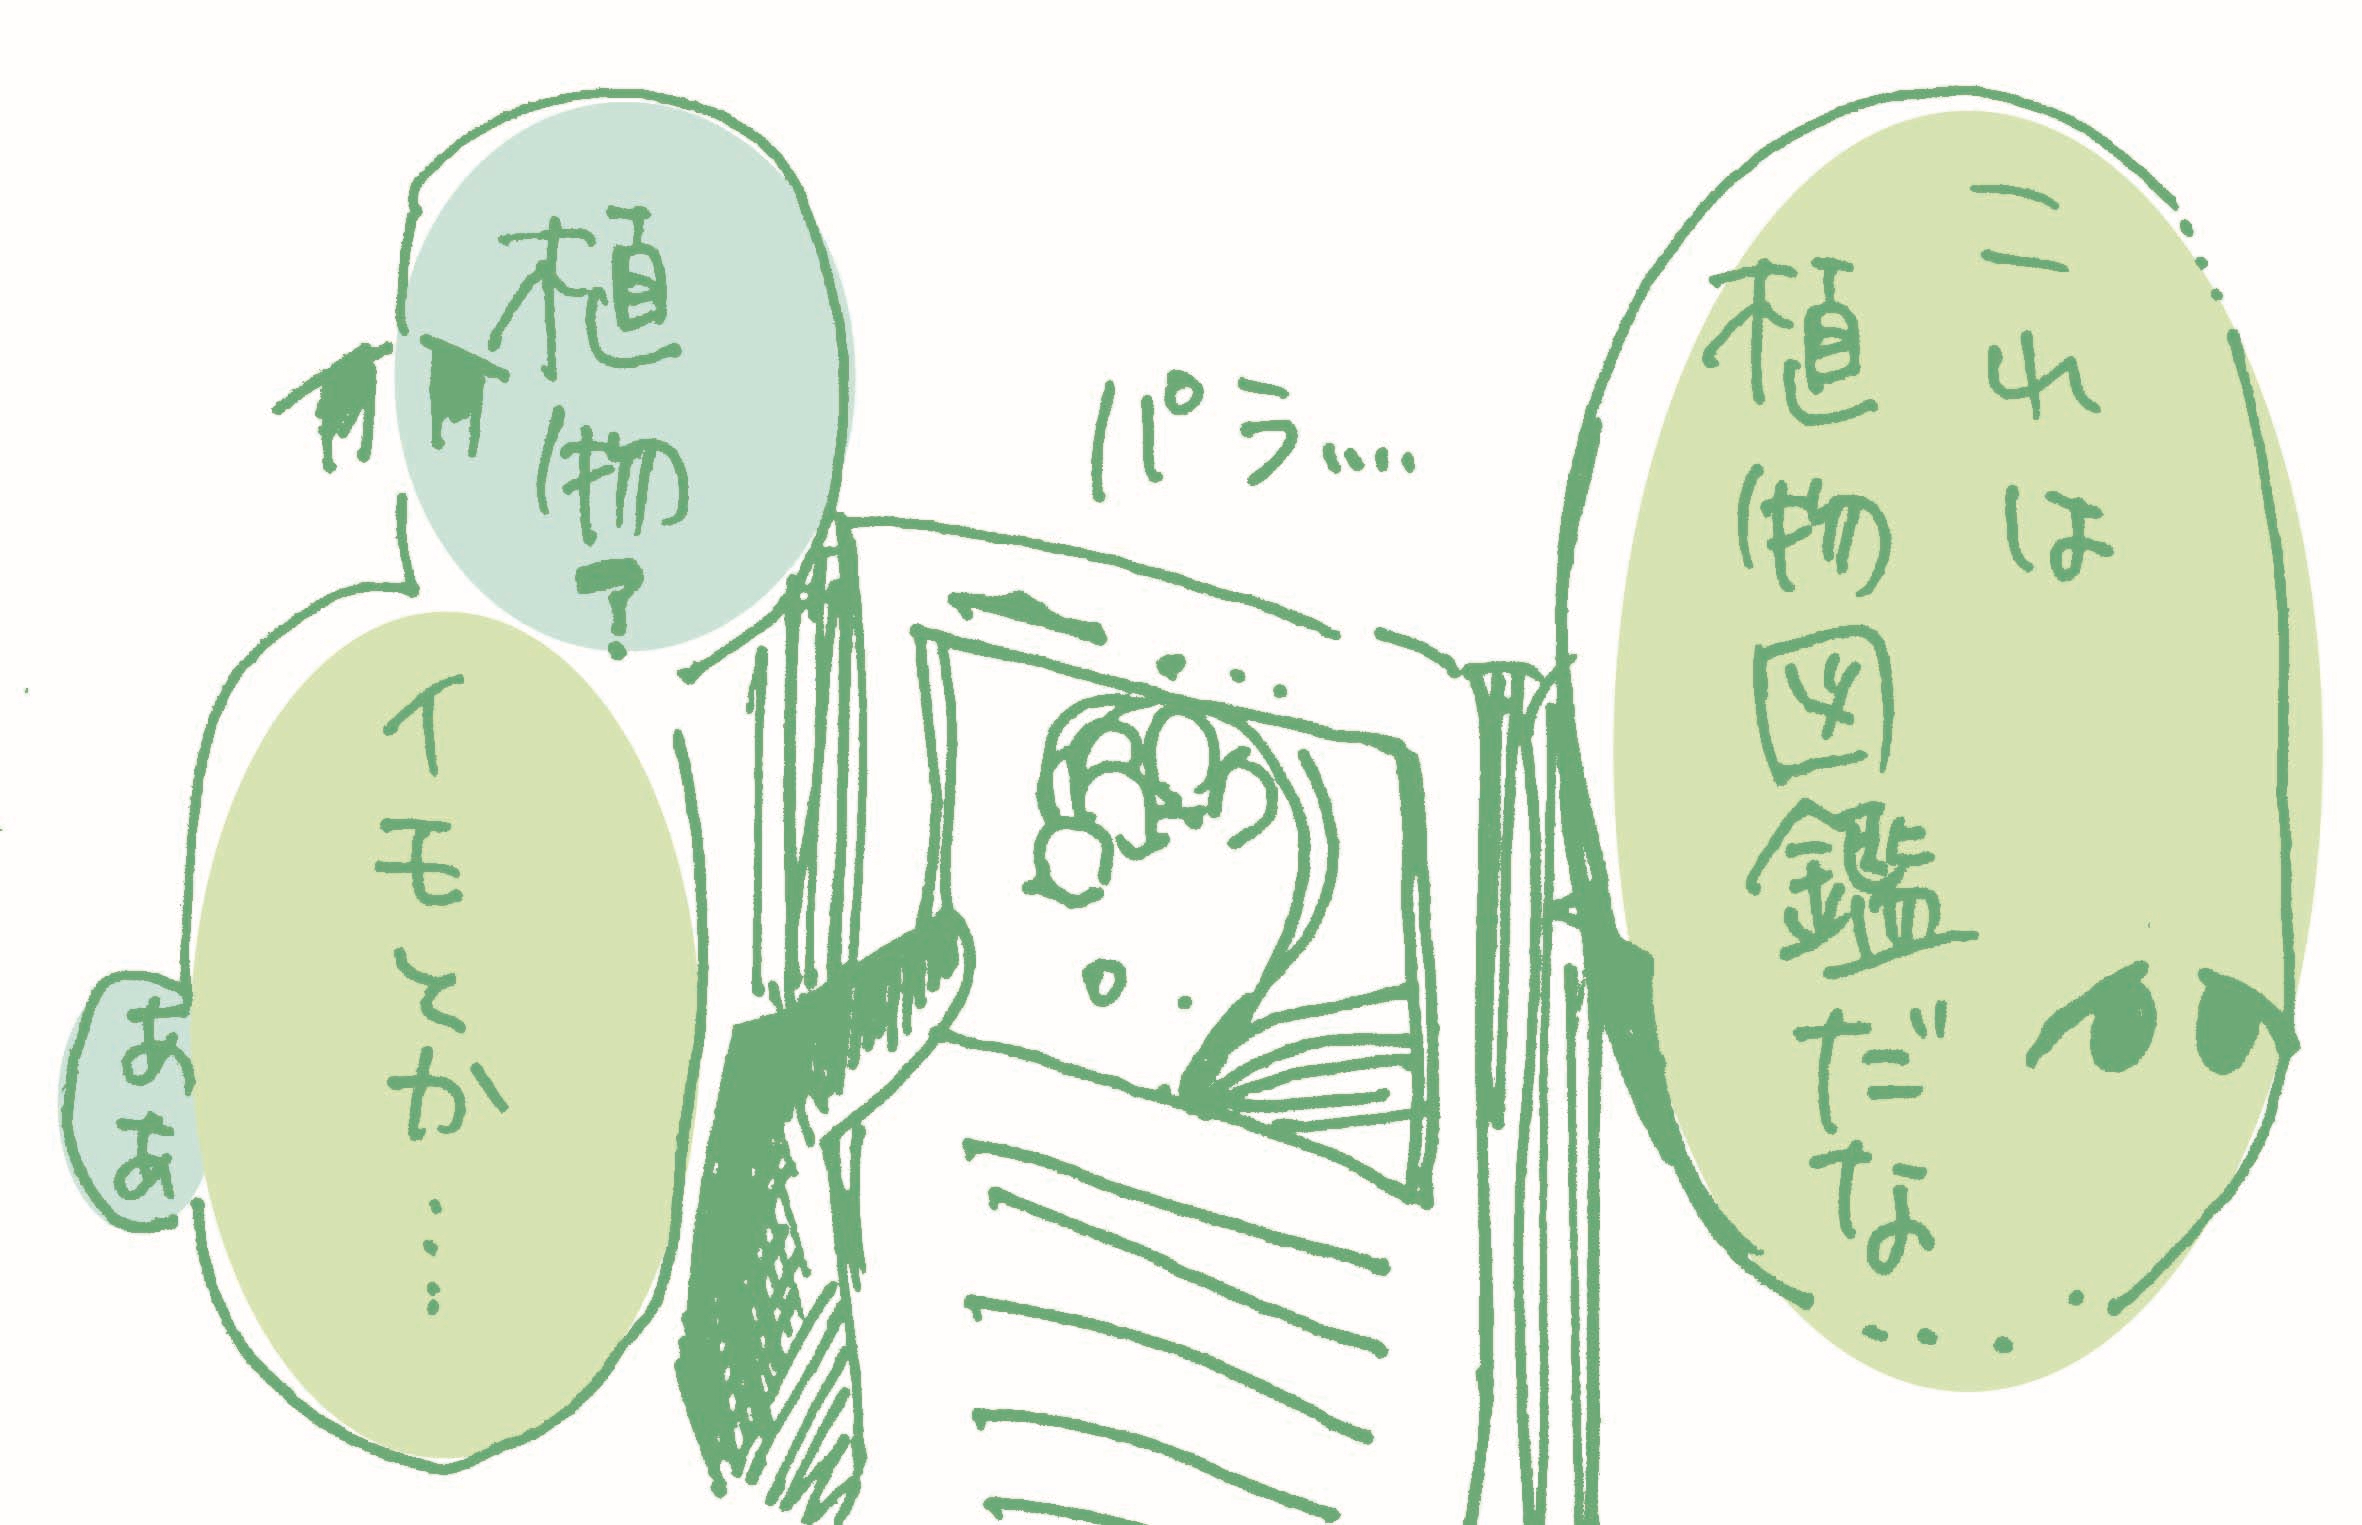 これは
植物図鑑だな
パラ……
植物？
イモとか……
ああ